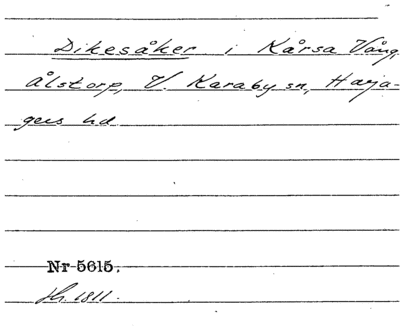 Dikesåker i Kårsa Vång,
Ålstorp, V. Karaby sn, Harja-
gers hd
Nr 5615.
Sh. 1811.